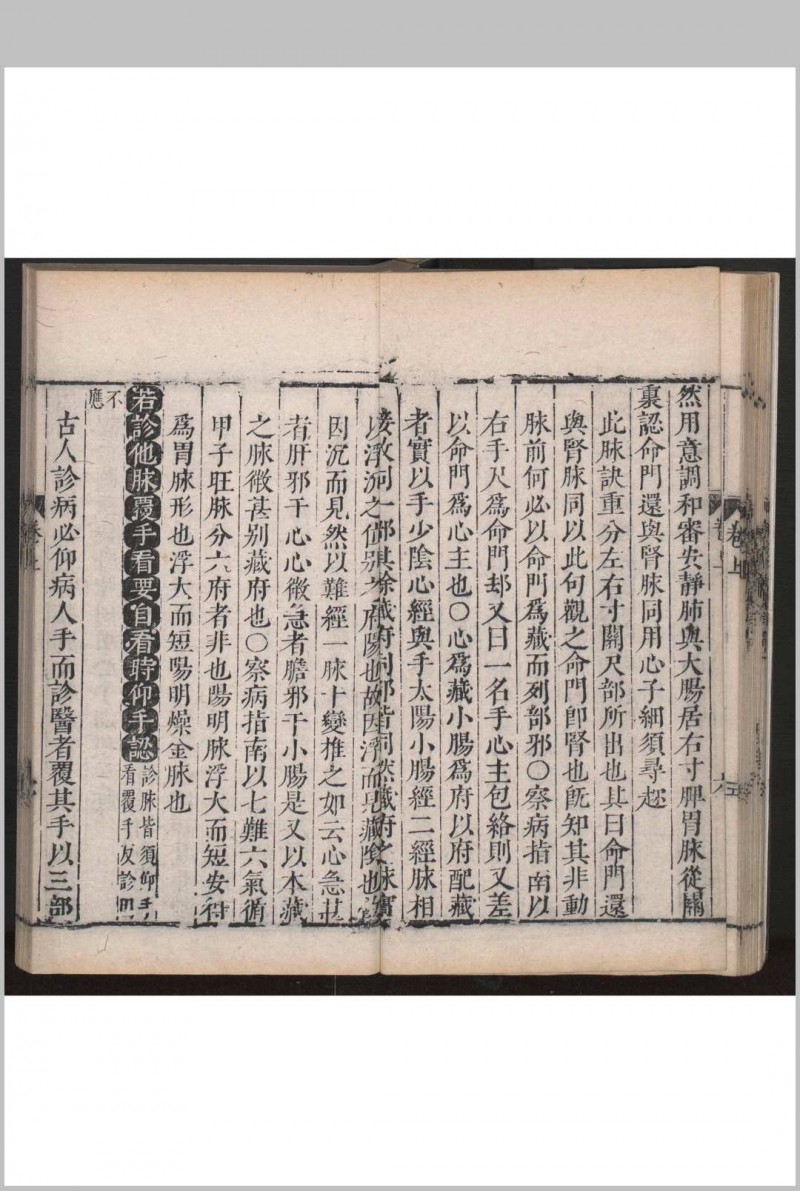 然用意調和審安靜肺與大腸居右寸脾胃脉從關
裏認命門還與腎脉同用心子細須尋趂
此脉訣重分左右寸關尺部所出也其曰命門還
與腎脉同以此句觀之命門卽腎也旣知其非動
脉前何必以命門爲藏而列部邪〇察病指南以
右手尺爲命門却又曰一名手心主包絡則又差
以命門爲心主也〇心爲藏小腸爲府以府配藏
者實以手少陰心經與手太陽小腸經二經脉相
接故同一部其餘藏府同部皆同然藏府之脉當
以浮沉之位别之府陽也故因浮而見藏陰也
因沉而見然以難經一脉十變推之如云心急甚
者肝邪干心心微急者膽邪干小腸是又以本藏
之脉微甚别藏府也〇察病指南以七難六氣循
甲子旺脉分六府者非也陽明脉浮大而短安得
爲胃脉形也浮大而短陽明燥金脉也
若診他脉覆手看要自看時仰手認
診脉皆須仰手
看覆手反診
不應
古人診病必仰病人手而診醫者覆其手以三部
卷上
卷上